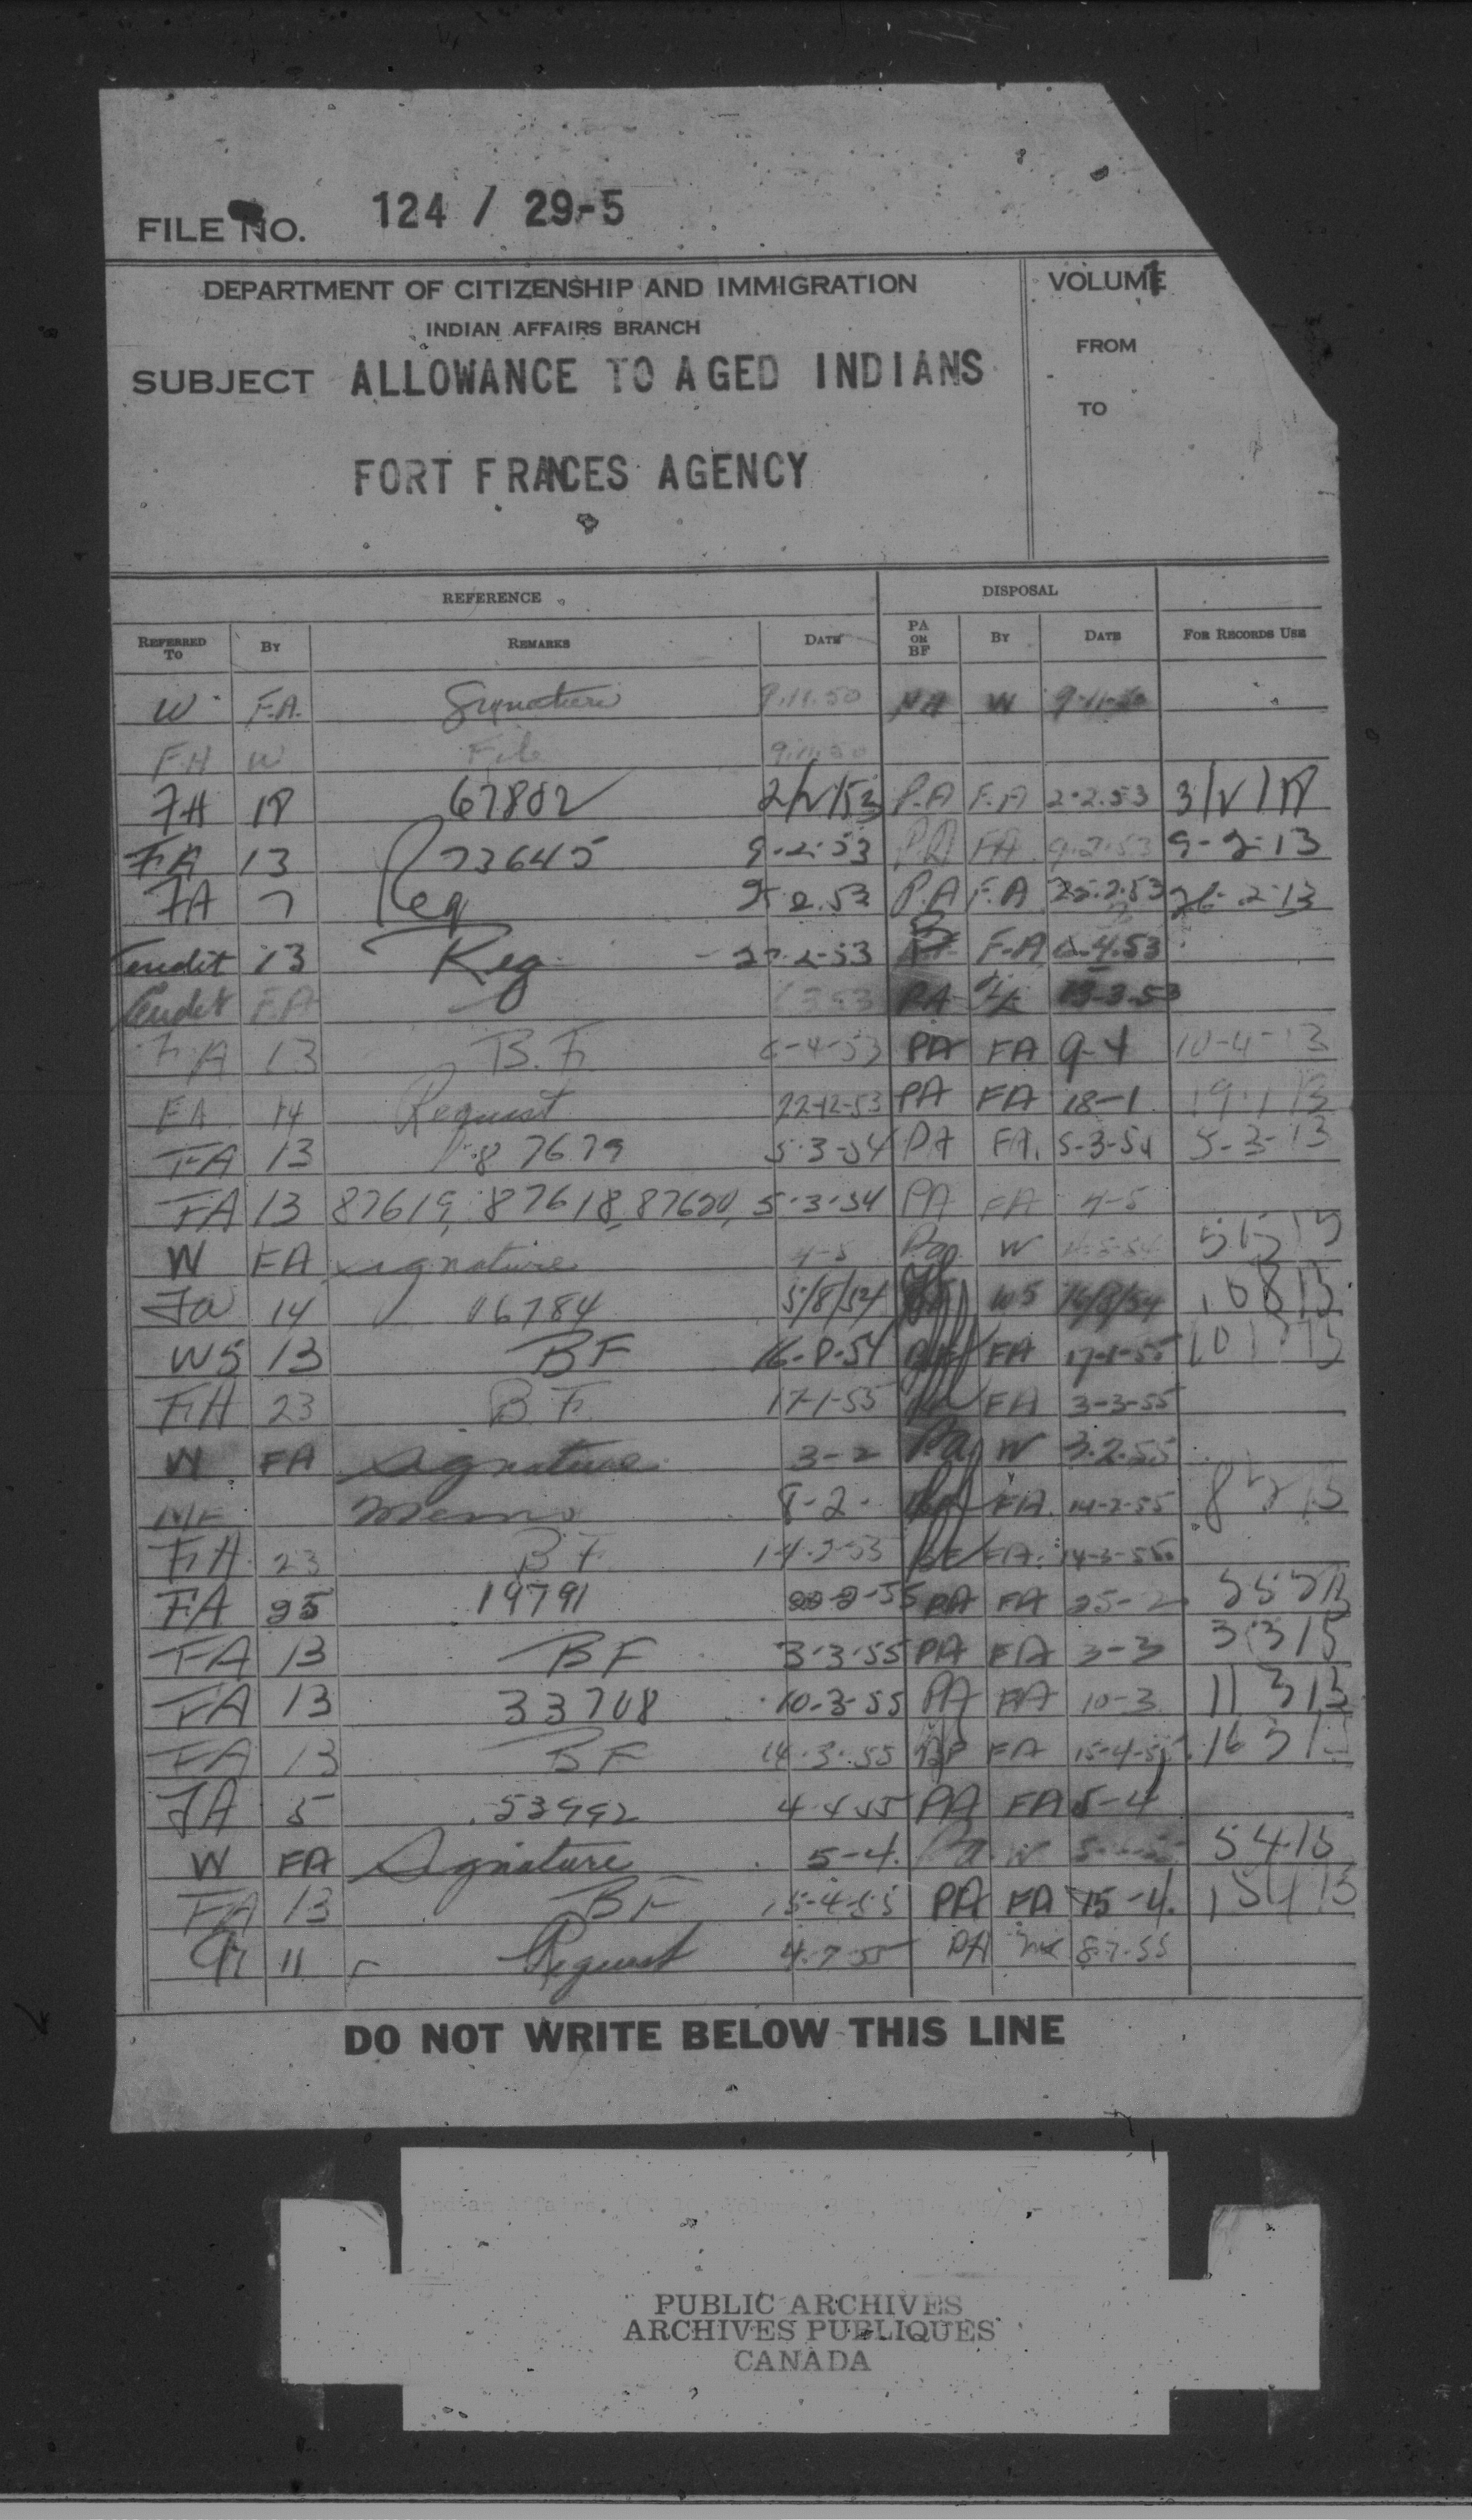 FILE NO. 124 / 29-5
DEPARTMENT OF CITIZENSHIP AND IMMIGRATION
INDIAN AFFAIRS BRANCH
SUBJECT ALLOWANCE TO AGED INDIANS
FORT FRANCES AGENCY
VOLUME 1
FROM
TO
REFERENCE DISPOSAL
REFERRED TO BY REMARKS DATE PA OR BF BY DATE FOR RECORDS USE
W F.A. Signature 9.11.50 PA W 9-11-50
FA W File 9.11.50
FA 18 67802 2/2/53 P.A F.A 2.2.53
FA 13 73645 9-2-53 PA FA 9.2.53 9-2-13
FA 7 Req 2.53 P.A F.A 25.2.53 26-2-13
13 Req 2-53 F-A 4.53
FA PA 13-3-53
FA 13 B.F. 6-4-53 PA FA 9-4 10-4-13
FA 14 Request 22-12-53 PA FA 18-1 19-1-13
FA 13 87679 5-3-54 PA FA. 5-3-54 5-3-13
FA 13 87619, 87618, 87620, 5-3-54 PA FA 4-5
W FA signature 4-5 Pa W 4-5-54
Fa 14 06784 5/8/54 WS 16/8/54
WS 13 BF 16-8-54 BF FA 17-1-55
FA 23 B.F. 17-1-55 FA 3-3-55
W FA signature 3-2 Pa W 3.2.55
Memo 8-2- FA. 14-2-55
FA 23 BF BF FA. 14-3-55
FA 25 19791 22-2-55 PA FA 25-2
FA 13 BF 3-3-55 PA FA 3-3 3 3 13
FA 13 33708 10-3-55 PA FA 10-3 11 3 13
FA 13 BF 14-3-55 BF FA 15-4-55 16 3 13
FA 5 53992 4-4-55 PA FA 5-4
W FA Signature 5-4. Pa W 5 4 13
FA 13 BF 15-4-55 PA FA 15-4. 15 4 13
11 Request 4-7-55 PA 8-7-55
DO NOT WRITE BELOW THIS LINE
PUBLIC ARCHIVES
ARCHIVES PUBLIQUES
CANADA